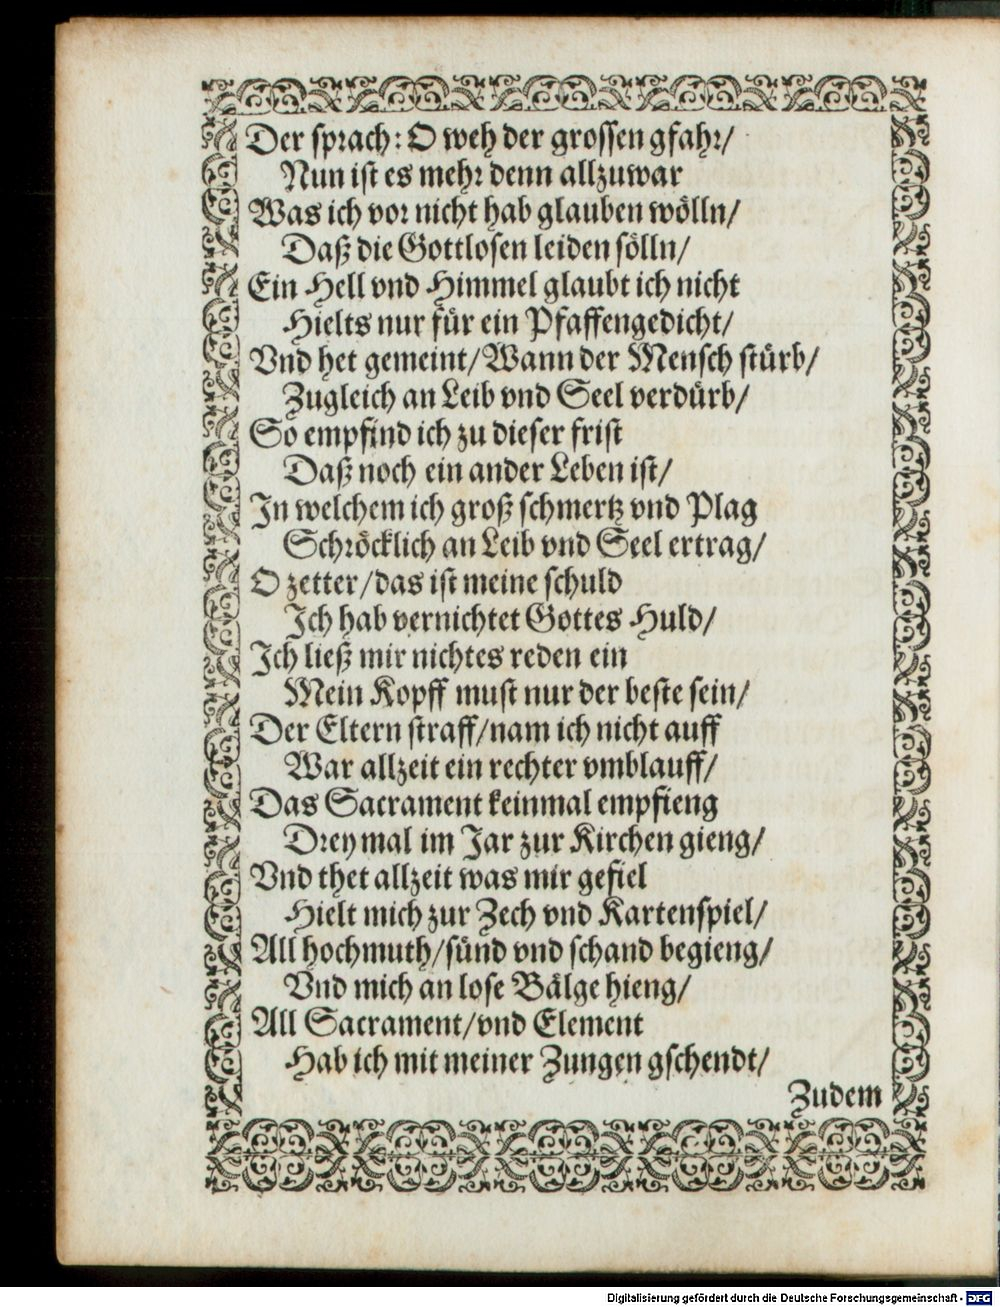 Der sprach: O weh der grossen gfahr/
Nun ist es mehr denn allzuwar
Was ich vor nicht hab glauben wölln/
Daß die Gottlosen leiden sölln/
Ein Hell vnd Himmel glaubt ich nicht
Hielts nur für ein Pfaffengedicht/
Vnd het gemeint/ Wann der Mensch stürb/
Zugleich an Leib vnd Seel verdürb/
So empfind ich zu dieser frist
Daß noch ein ander Leben ist/
In welchem ich groß schmertz vnd Plag
Schröcklich an Leib vnd Seel ertrag/
O zetter/ das ist meine schuld
Ich hab vernichtet Gottes Huld/
Ich ließ mir nichtes reden ein
Mein Kopff must nur der beste sein/
Der Eltern straff/ nam ich nicht auff
War allzeit ein rechter vmblauff/
Das Sacrament keinmal empfieng
Drey mal im Jar zur Kirchen gieng/
Vnd thet allzeit was mir gefiel
Hielt mich zur Zech vnd Kartenspiel/
All hochmuth/ sünd vnd schand begieng/
Vnd mich an lose Bälge hieng/
All Sacrament/ vnd Element
Hab ich mit meiner Zungen gschendt/
Zudem
Digitalisierung gefördert durch die Deutsche Forschungsgemeinschaft - DFG